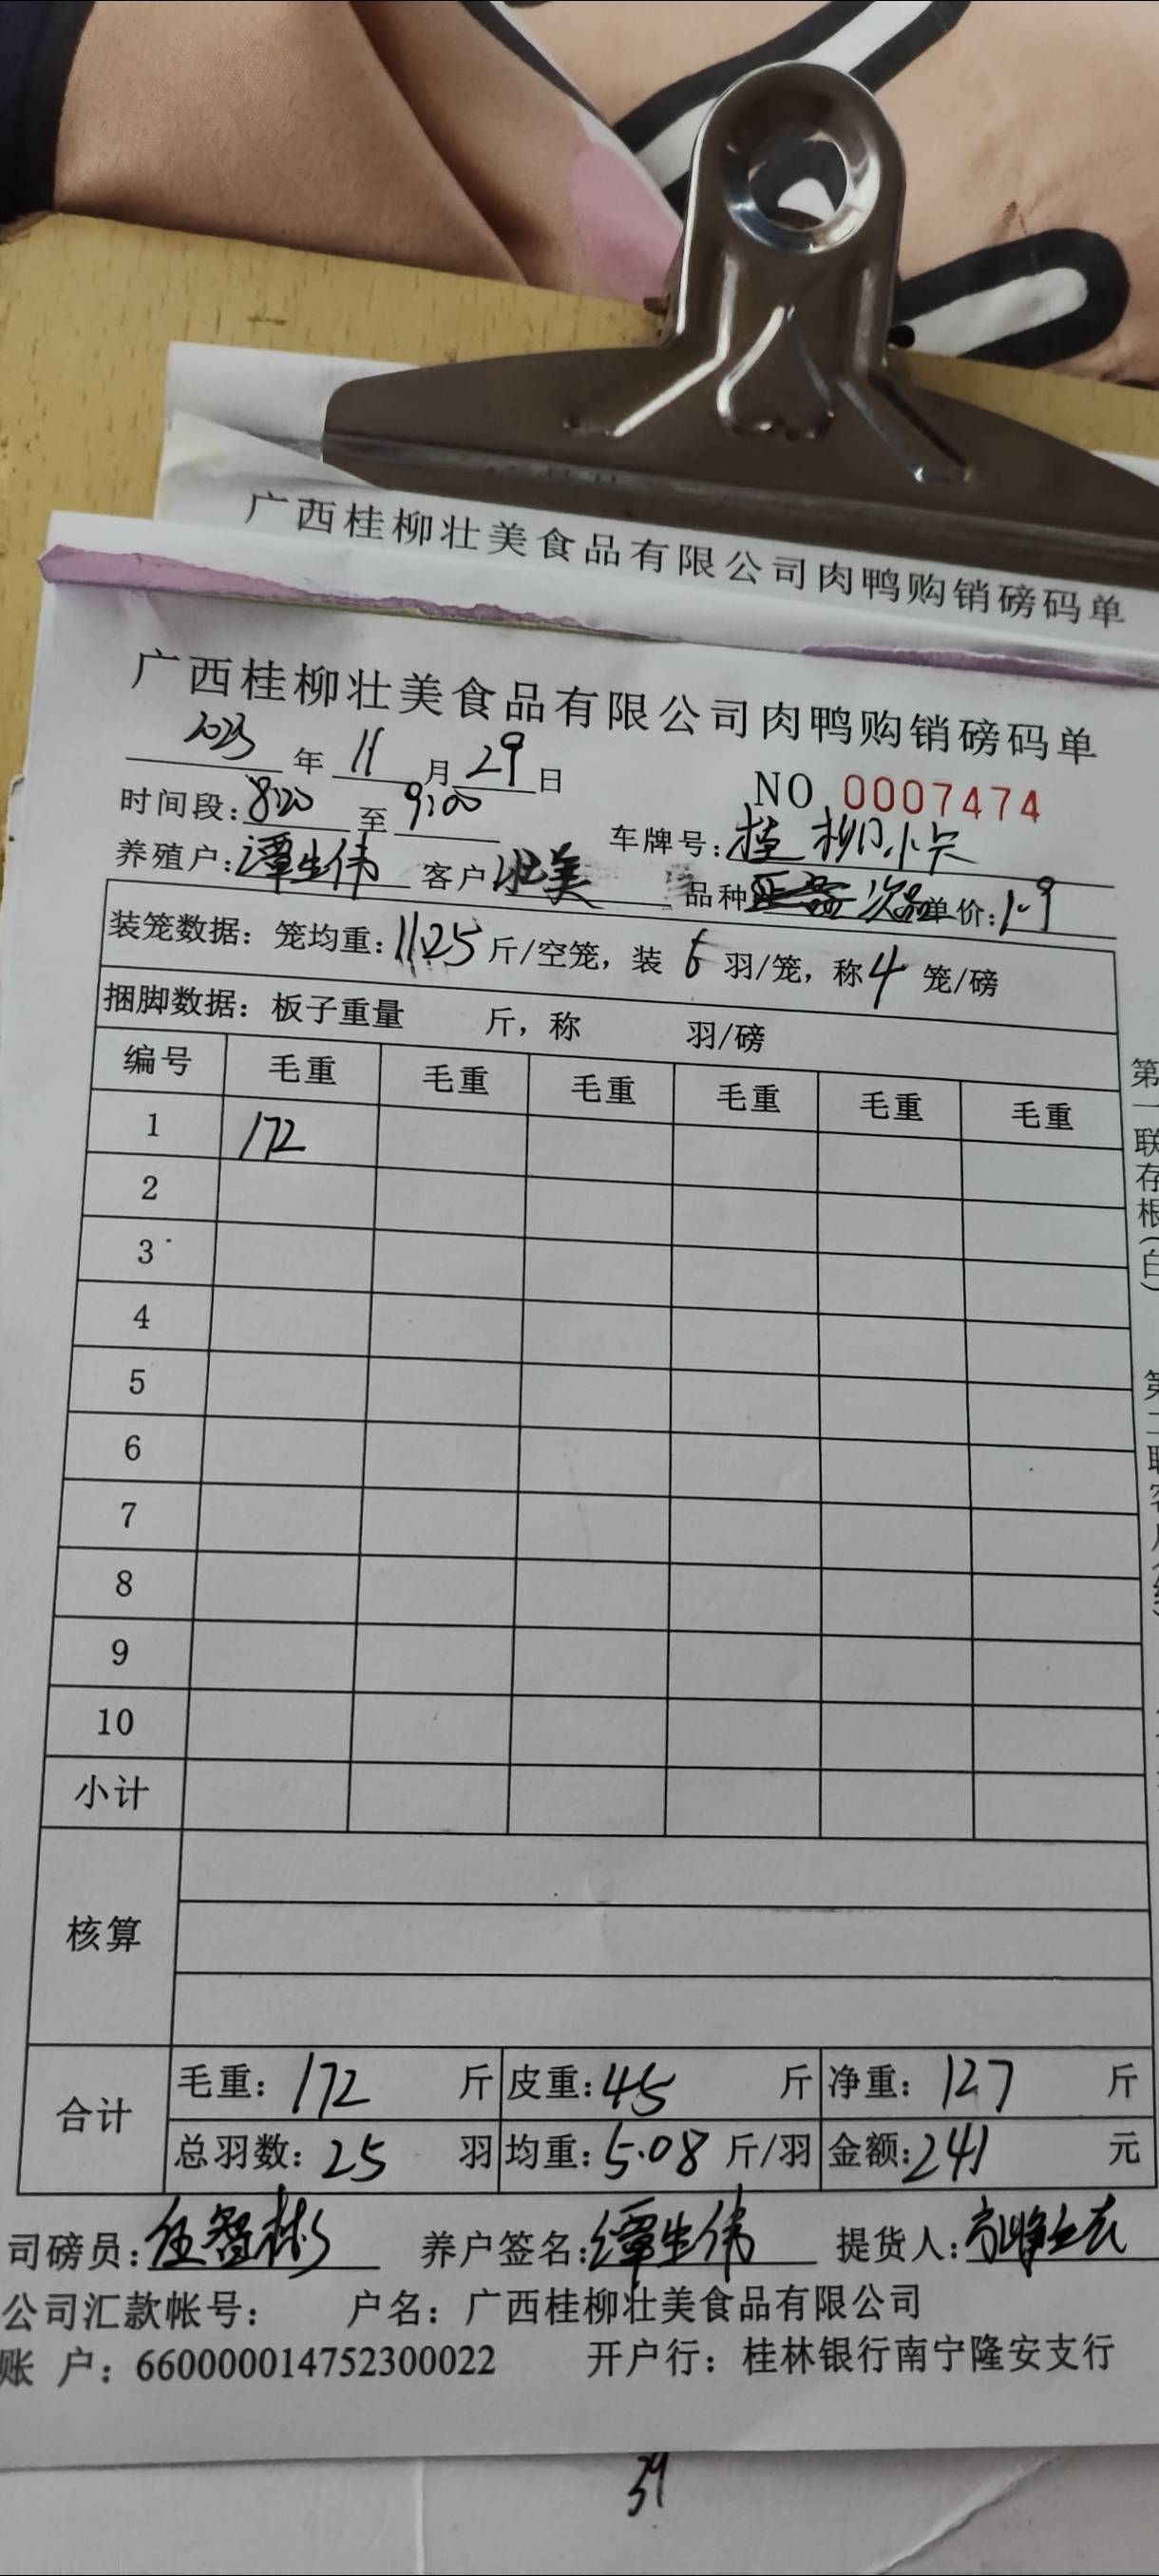 广西桂柳壮美食品有限公司肉鸭购销磅码单
广西桂柳壮美食品有限公司肉鸭购销磅码单
2023年11月29日
NO 0007474
时间段:8:20至9:00 车牌号:桂柳小
养殖户:谭生伟 客户壮美 品种 次品 单价:1.9
装笼数据：笼均重:11.25斤/空笼，装6羽/笼，称4笼/磅
捆脚数据：板子重量 斤，称 羽/磅
编号 毛重 毛重 毛重 毛重 毛重 毛重
1 172
2
3
4
5
6
7
8
9
10
小计
核算
合计 毛重：172斤 皮重:45斤 净重：127斤
总羽数：25羽 均重:5.08斤/羽 金额:241元
司磅员:任智彬 养户签名:谭生伟 提货人:
公司汇款帐号： 户名：广西桂柳壮美食品有限公司
账 户：660000014752300022 开户行：桂林银行南宁隆安支行
第一联存根(白)